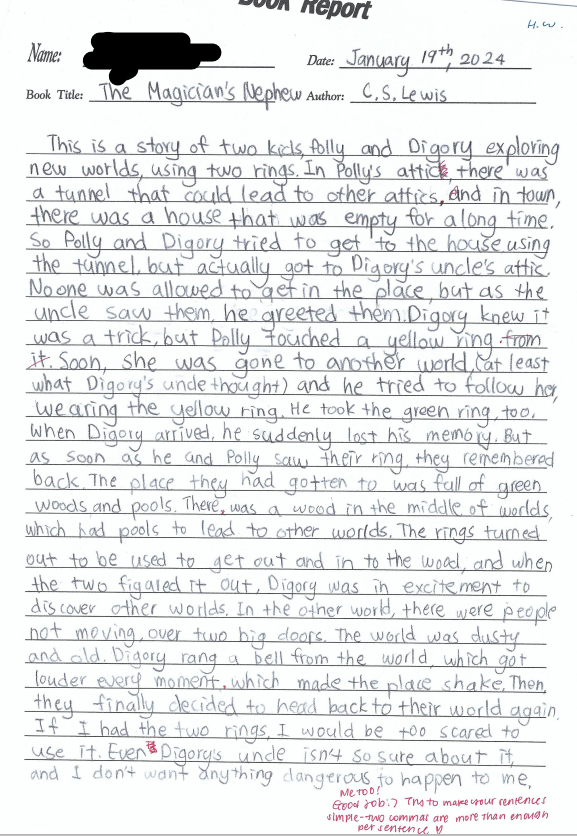 Book Report
H.W.
Name: Date: January 19th, 2024
Book Title: The Magician's Nephew Author: C.S. Lewis
This is a story of two kids, Polly and Digory exploring
new worlds, using two rings. In Polly's attic, there was
a tunnel that could lead to other attics, and in town,
there was a house that was empty for a long time.
So Polly and Digory tried to get to the house using
the tunnel, but actually got to Digory's uncle's attic.
No one was allowed to get in the place, but as the
uncle saw them, he greeted them. Digory knew it
was a trick, but Polly touched a yellow ring from
it. Soon, she was gone to another world, (at least
what Digory's uncle thought) and he tried to follow her,
wearing the yellow ring. He took the green ring, too.
When Digory arrived, he suddenly lost his memory. But
as soon as he and Polly saw their ring, they remembered
back. The place they had gotten to was full of green
woods and pools. There, was a wood in the middle of worlds,
which had pools to lead to other worlds. The rings turned
out to be used to get out and in to the wood, and when
the two figared it out, Digory was in excitement to
discover other worlds. In the other world, there were people
not moving, over two big doors. The world was dusty
and old. Digory rang a bell from the world, which got
louder every moment, which made the place shake. Then,
they finally decided to head back to their world again.
If I had the two rings, I would be too scared to
use it. Even Digory's uncle isn't so sure about it,
and I don't want anything dangerous to happen to me.
Me too!
Good job :) Try to make your sentences
simple - two commas are more than enough
per sentence